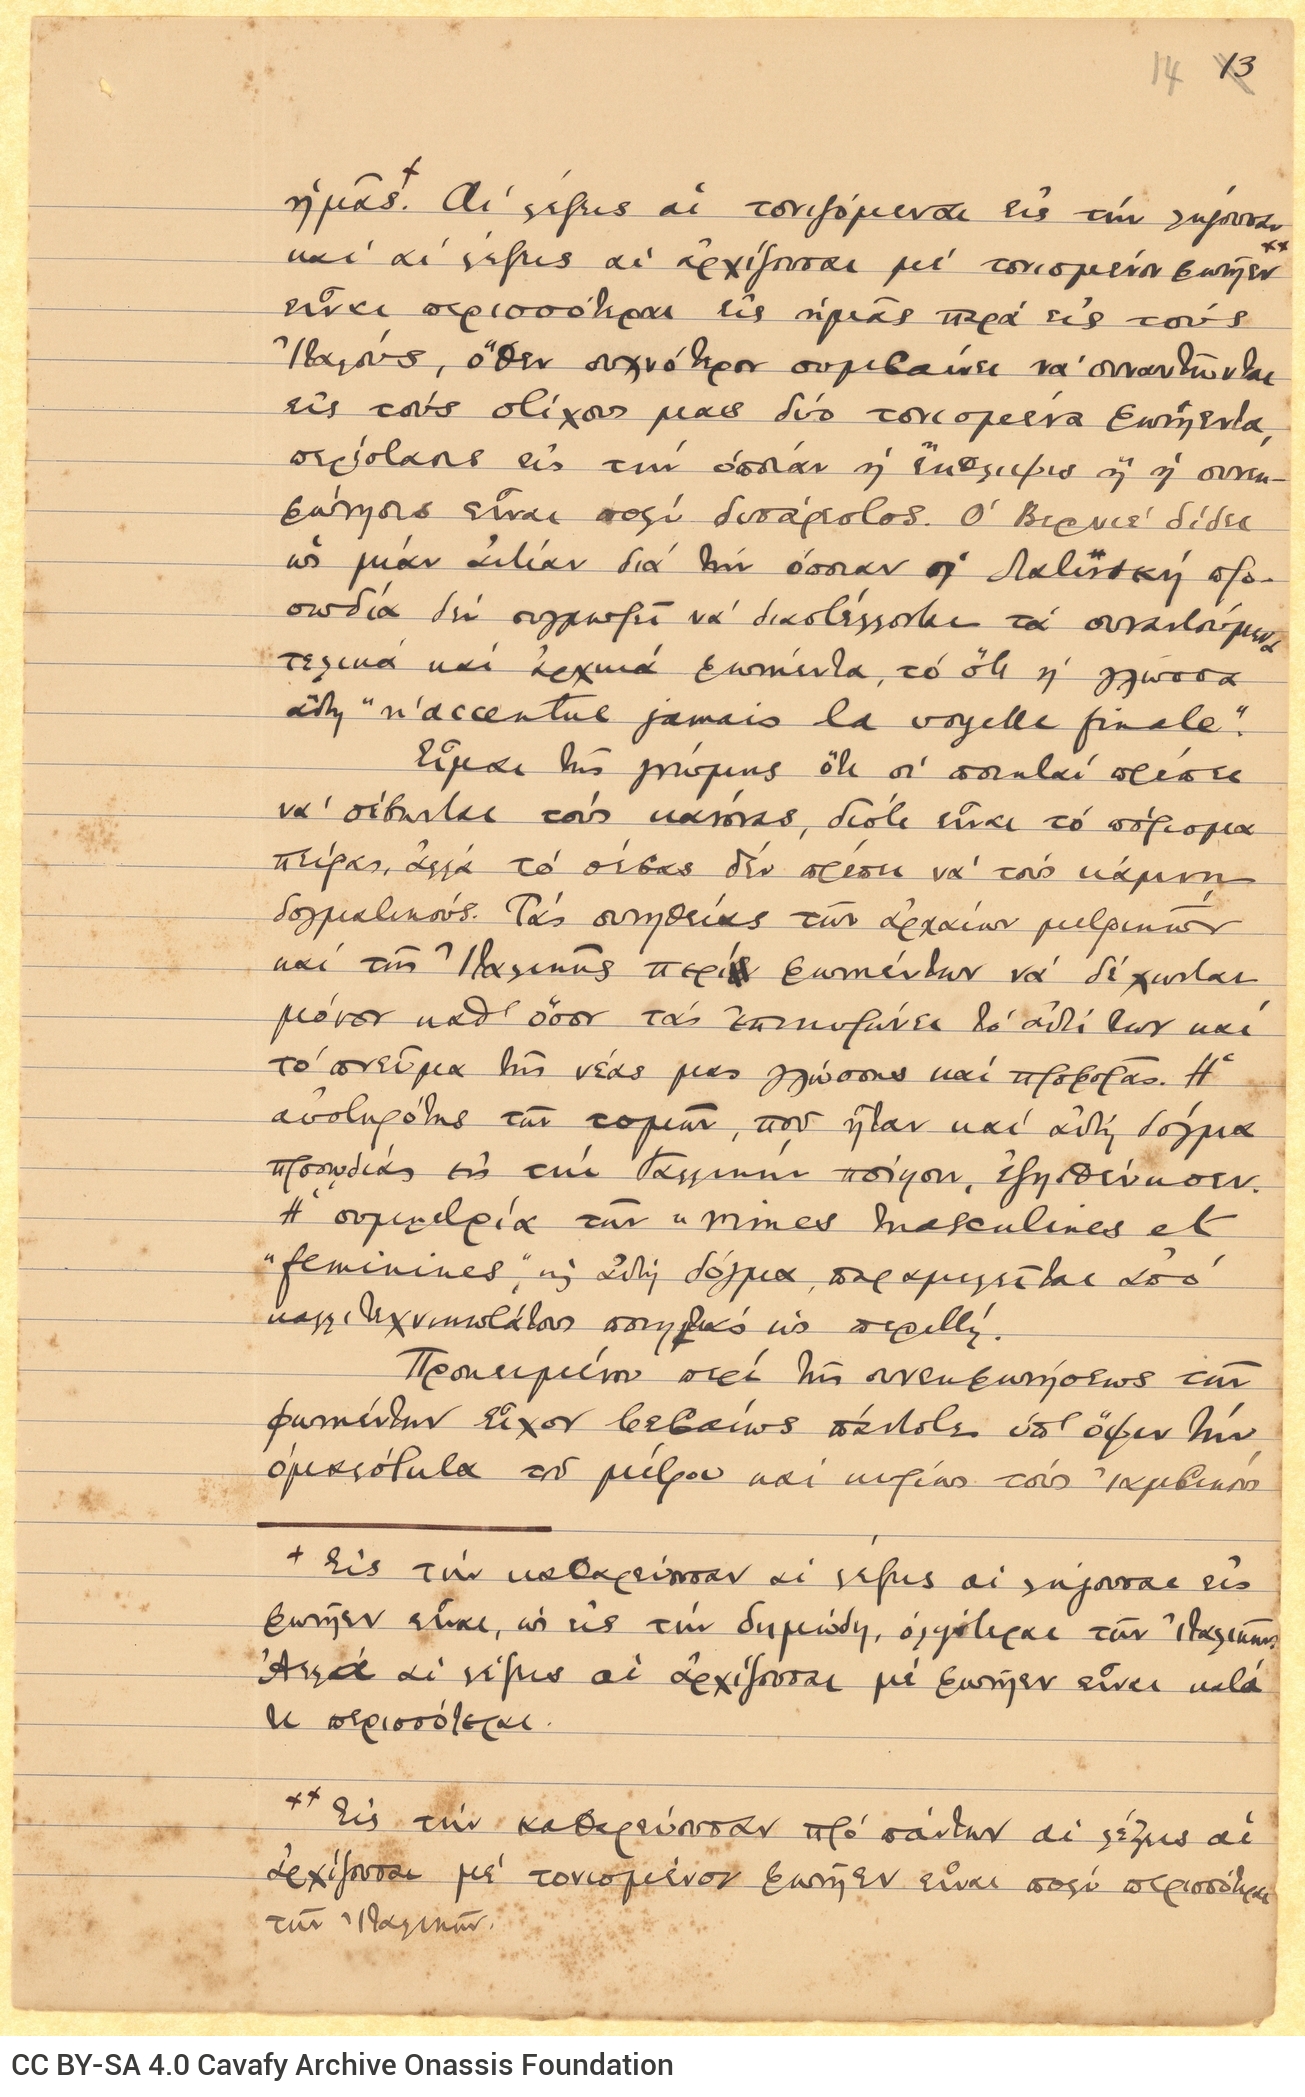 14 13
ἡμᾶς.+ Αἱ λέξεις αἱ τονιζόμεναι εἰς τὴν λήγουσαν
καὶ αἱ λέξεις αἱ ἀρχίζουσαι μὲ τονισμένον φωνῆεν**
εἶναι περισσότεραι εἰς ἡμᾶς παρὰ εἰς τοὺς
Ἰταλούς, ὅθεν συχνότερον συμβαίνει νὰ συναντῶνται
εἰς τοὺς στίχους μας δύο τονισμένα φωνήεντα,
περίστασις εἰς τὴν ὁποίαν ἡ ἔκθλιψις ἢ ἡ συνεκ-
φώνησις εἶναι πολὺ δυσάρεστος. Ὁ Βερνιέ δίδει
ὡς μίαν αἰτίαν διὰ τὴν ὁποίαν ἡ Λατινικὴ προ-
σωδία δὲν συγχωρεῖ νὰ διαστέλλονται τὰ συναντούμενα
τελικὰ καὶ ἀρχικὰ φωνήεντα, τὸ ὅτι ἡ γλῶσσα
αὕτη "n'accentue jamais la voyelle finale".
Εἶμαι τῆς γνώμης ὅτι οἱ ποιηταὶ πρέπει
νὰ σέβωνται τοὺς κανόνας, διότι εἶναι τὸ πόρισμα
πείρας, ἀλλὰ τὸ σέβας δὲν πρέπει νὰ τοὺς κάμνῃ
δογματικούς. Τὰς συνηθείας τῶν ἀρχαίων μετρικῶν
καὶ τῆς Ἰταλικῆς περὶ φωνηέντων νὰ δέχωνται
μόνον καθ' ὅσον τὰς ἐπικυρώνει τὸ αὐτί των καὶ
τὸ πνεῦμα τῆς νέας μας γλώσσης καὶ προφορᾶς. Ἡ
αὐστηρότης τῶν τομῶν, ποῦ ἦταν καὶ αὐτὴ δόγμα
προσῳδίας εἰς τὴν Γαλλικὴν ποίησιν, ἐξησθένησεν.
Ἡ συμμετρία τῶν "rimes masculines et
"feminines", ὡς αὐτὴ δόγμα, παραμελεῖται ἀπὸ
καλλιτεχνικωτάτους ποιητικὸ ὡς περιττή.
Προκειμένου περὶ τῆς συνεκφωνήσεως τῶν
φωνηέντων εἶχον βεβαίως πάντοτε ὑπ' ὄψιν τὴν
ὁμαλότητα τοῦ μέτρου καὶ κυρίως τοὺς ἰαμβικούς
+ Εἰς τὴν καθαρεύουσαν αἱ λέξεις αἱ λήγουσαι εἰς
φωνῆεν εἶναι, ὡς εἰς τὴν δημώδη, ὀλιγότεραι τῶν Ἰταλικῶν.
Ἀλλὰ αἱ λέξεις αἱ ἀρχίζουσαι μὲ φωνῆεν εἶναι κατά
τι περισσότεραι.
** Εἰς τὴν καθαρεύουσαν πρὸ πάντων αἱ λέξεις αἱ
ἀρχίζουσαι μὲ τονισμένον φωνῆεν εἶναι πολὺ περισσότεραι
τῶν Ἰταλικῶν.
CC BY-SA 4.0 Cavafy Archive Onassis Foundation